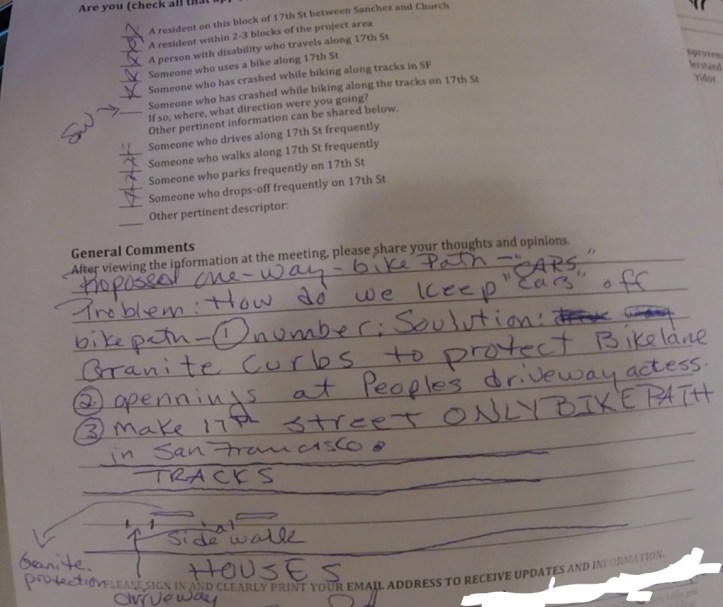 Are you (check all that
A resident on this block of 17th St between Sanchez and Church
A resident within 2-3 blocks of the project area
A person with disability who travels along 17th St
Someone who uses a bike along 17th St
Someone who has crashed while biking along tracks in SF
Someone who has crashed while biking along the tracks on 17th St
If so, where, what direction were you going?
Other pertinent information can be shared below.
Someone who drives along 17th St frequently
Someone who walks along 17th St frequently
Someone who parks frequently on 17th St
Someone who drops-off frequently on 17th St
Other pertinent descriptor:
General Comments
After viewing the information at the meeting, please share your thoughts and opinions.
Propossed one-way-bike Path - "CARS"
Problem: How do we keep "cars" off
bike path - ① number: Soulution:
Granite curbs to protect Bikelane
② opennings at Peoples driveway actess.
③ make 17th street ONLY BIKE PATH
in San Francisco.
TRACKS
Side walk
Granite
protection
HOUSES
PLEASE SIGN IN AND CLEARLY PRINT YOUR EMAIL ADDRESS TO RECEIVE UPDATES AND INFORMATION.
driveway